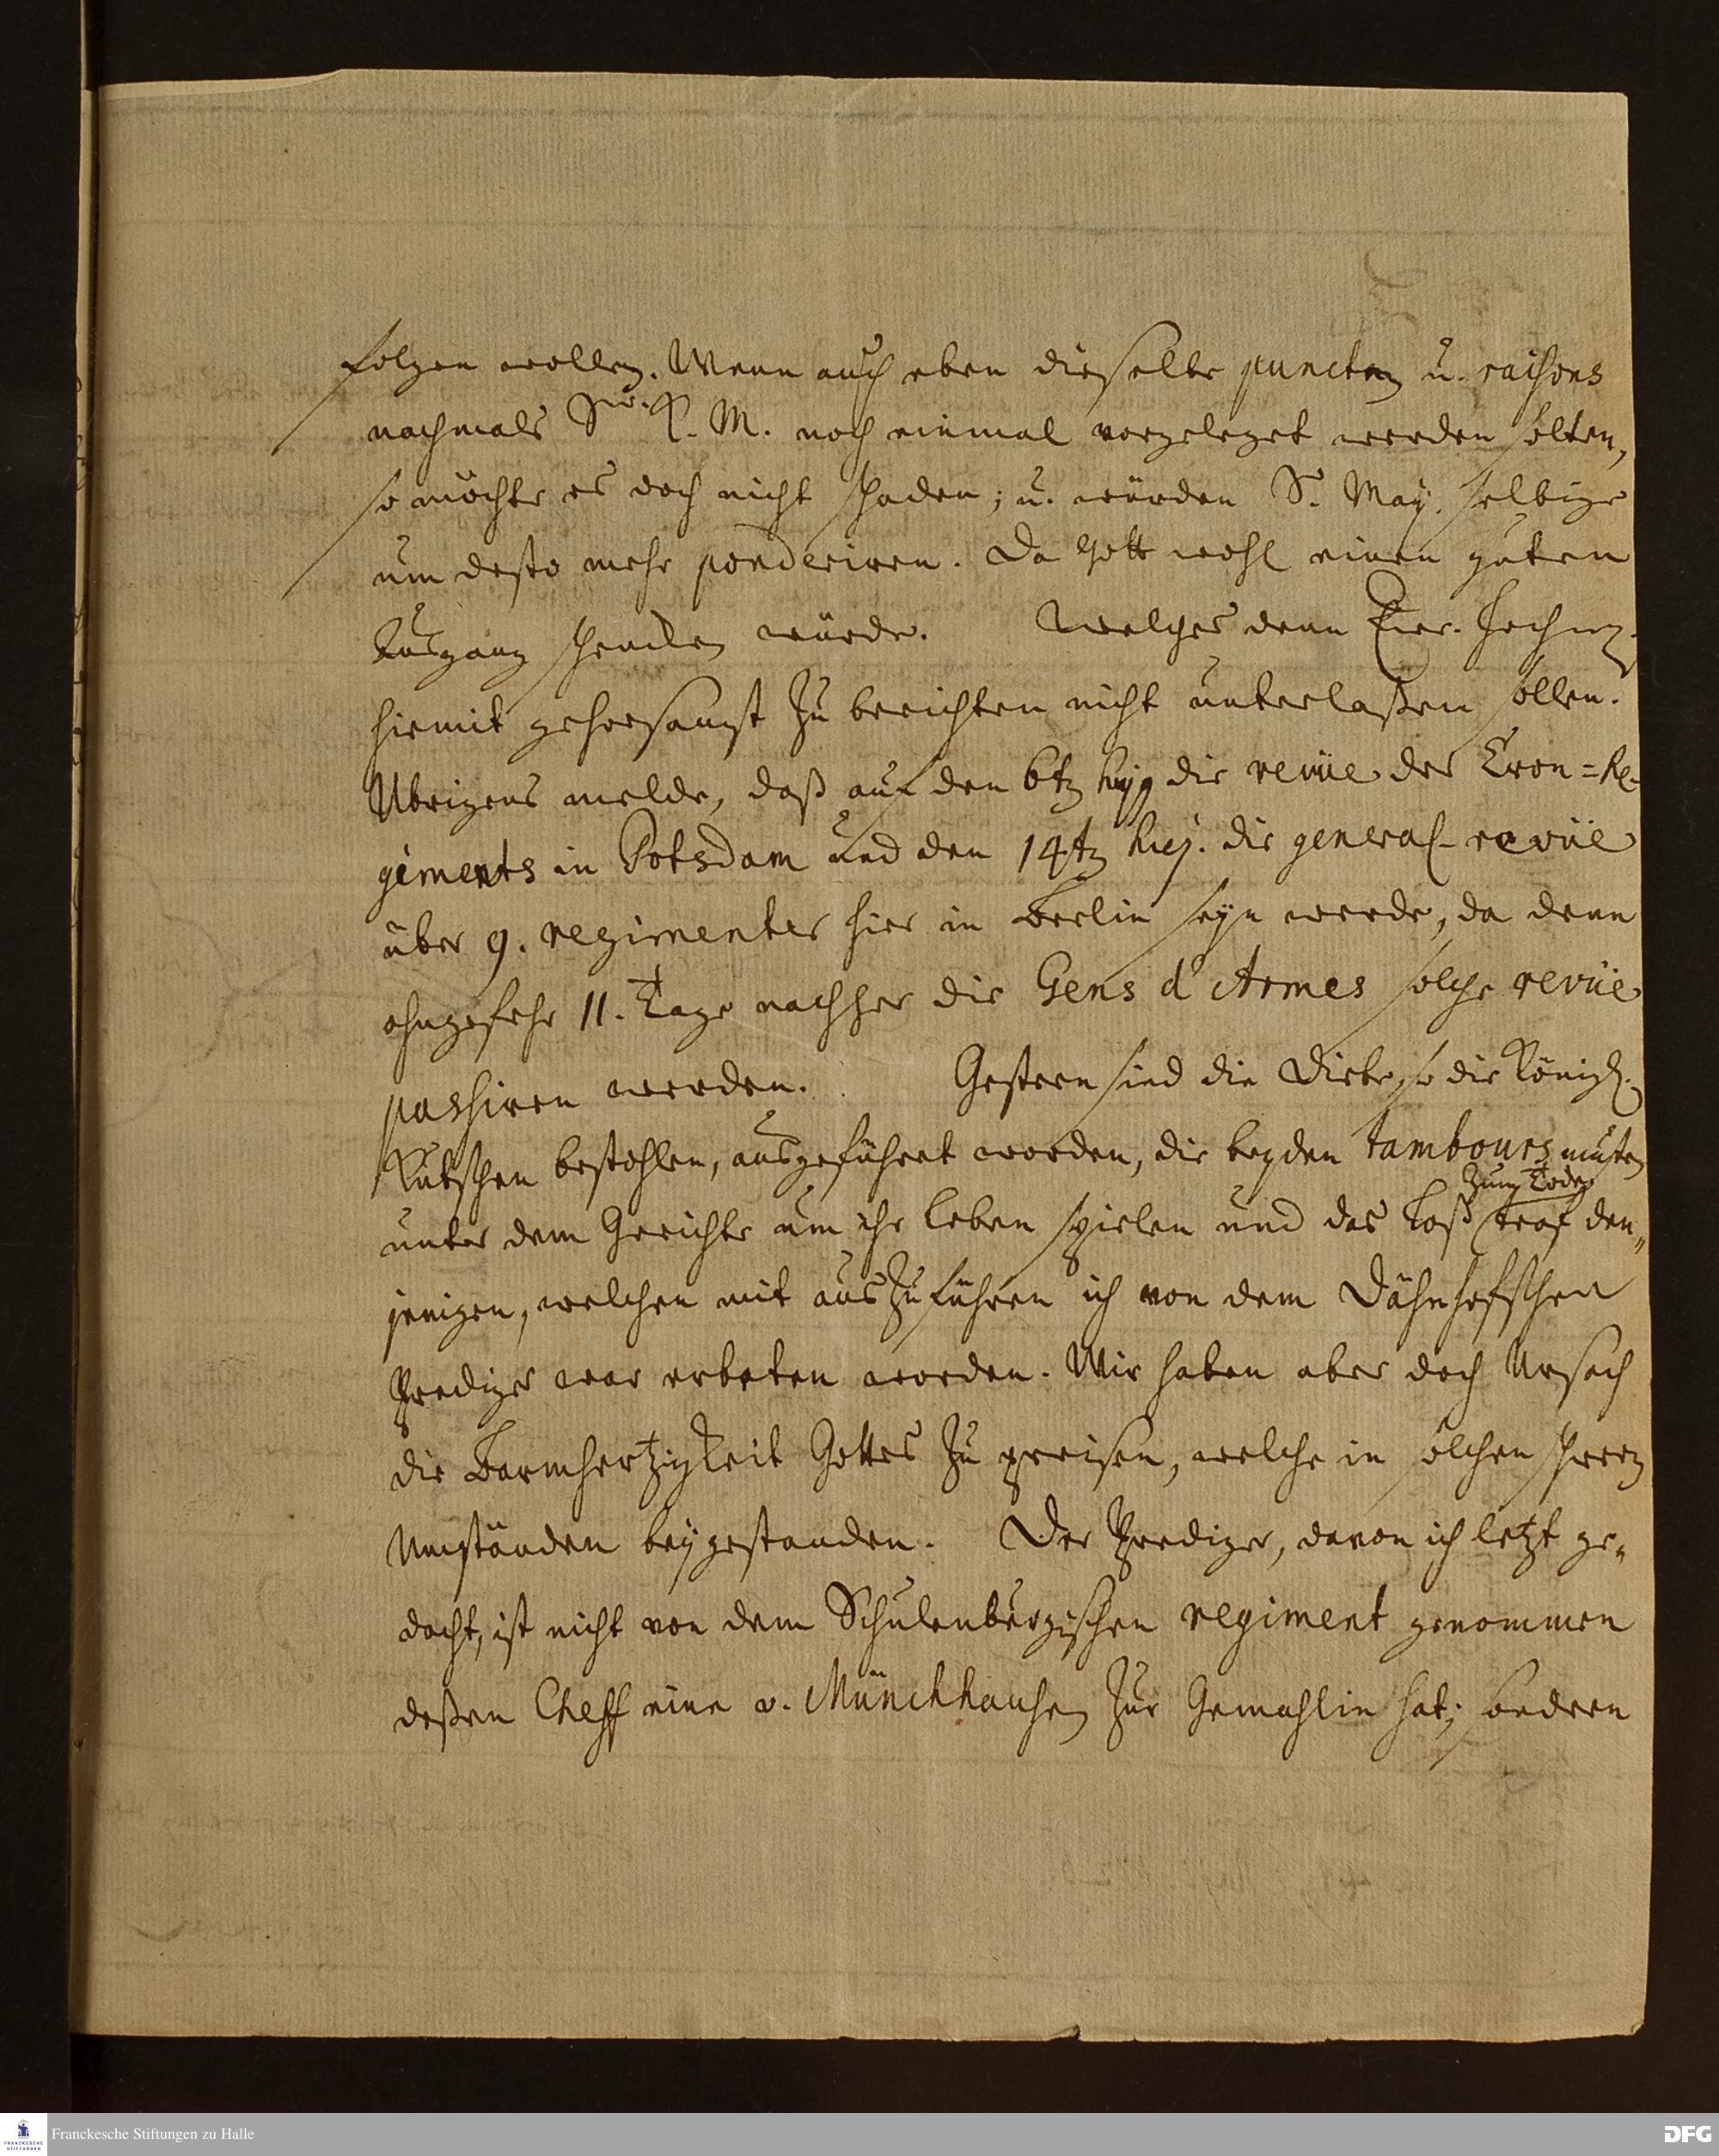 folgen wollen. Wenn auch eben dieselbe puncten u. raisons
nachmals Sr. K. M. noch einmal vorgeleget werden solten,
so möchte es doch nicht schaden; u. würden S. May. selbige
um desto mehr ponderiren. Da Gott wohl einen guten
Ausgang schencken würde. Welches denn Euer. Hochw.
hiemit gehorsamst zu berichten nicht unterlaßen sollen.
Ubrigens melde, daß auf den 6ten huj die revüe des Cron=Re-
giments in Potsdam und den 14ten huj. die general-revüe
über 9. regimenter hier in Berlin seyn werde, da denn
ohngefehr 11. Tage nachher die Gens d'Armes solche revüe
passiren werden. Gestern sind die Diebe, so die Königl.
Kutschen bestohlen, ausgeführet worden, die beyden tambours musten
zum Tode
unter dem Gerichte um ihr Leben spielen und das Loß traf den„
jenigen, welchen mit auszuführen ich von dem Dähnhofschen
Prediger war erbeten worden. Wir haben aber doch Ursach
die Barmhertzigkeit Gottes zu preisen, welche in solchen schweren
Umständen beygestanden. Der Prediger, davon ich letzt ge„
dacht, ist nicht von dem Schulenburgischen regiment genommen
deßen Cheff eine v. Münchhausen zur Gemahlin hat; sondern
Franckesche Stiftungen zu Halle
FRANCKESCHE STIFTUNGEN
DFG